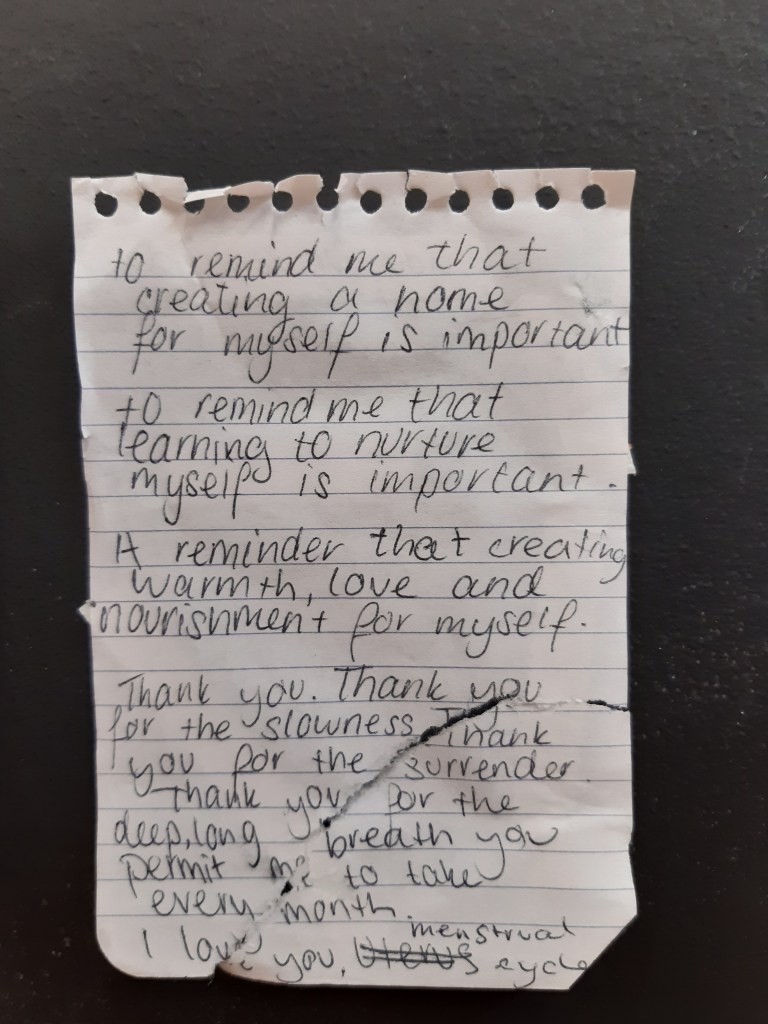 to remind me that
creating a home
for myself is important
to remind me that
learning to nurture
myself is important.
A reminder that creating
warmth, love and
nourishment for myself.
Thank you. Thank you
for the slowness Thank
you for the surrender.
Thank you for the
deep, long breath you
permit me to take
every month.
menstrual
I love you, Uterus cycle